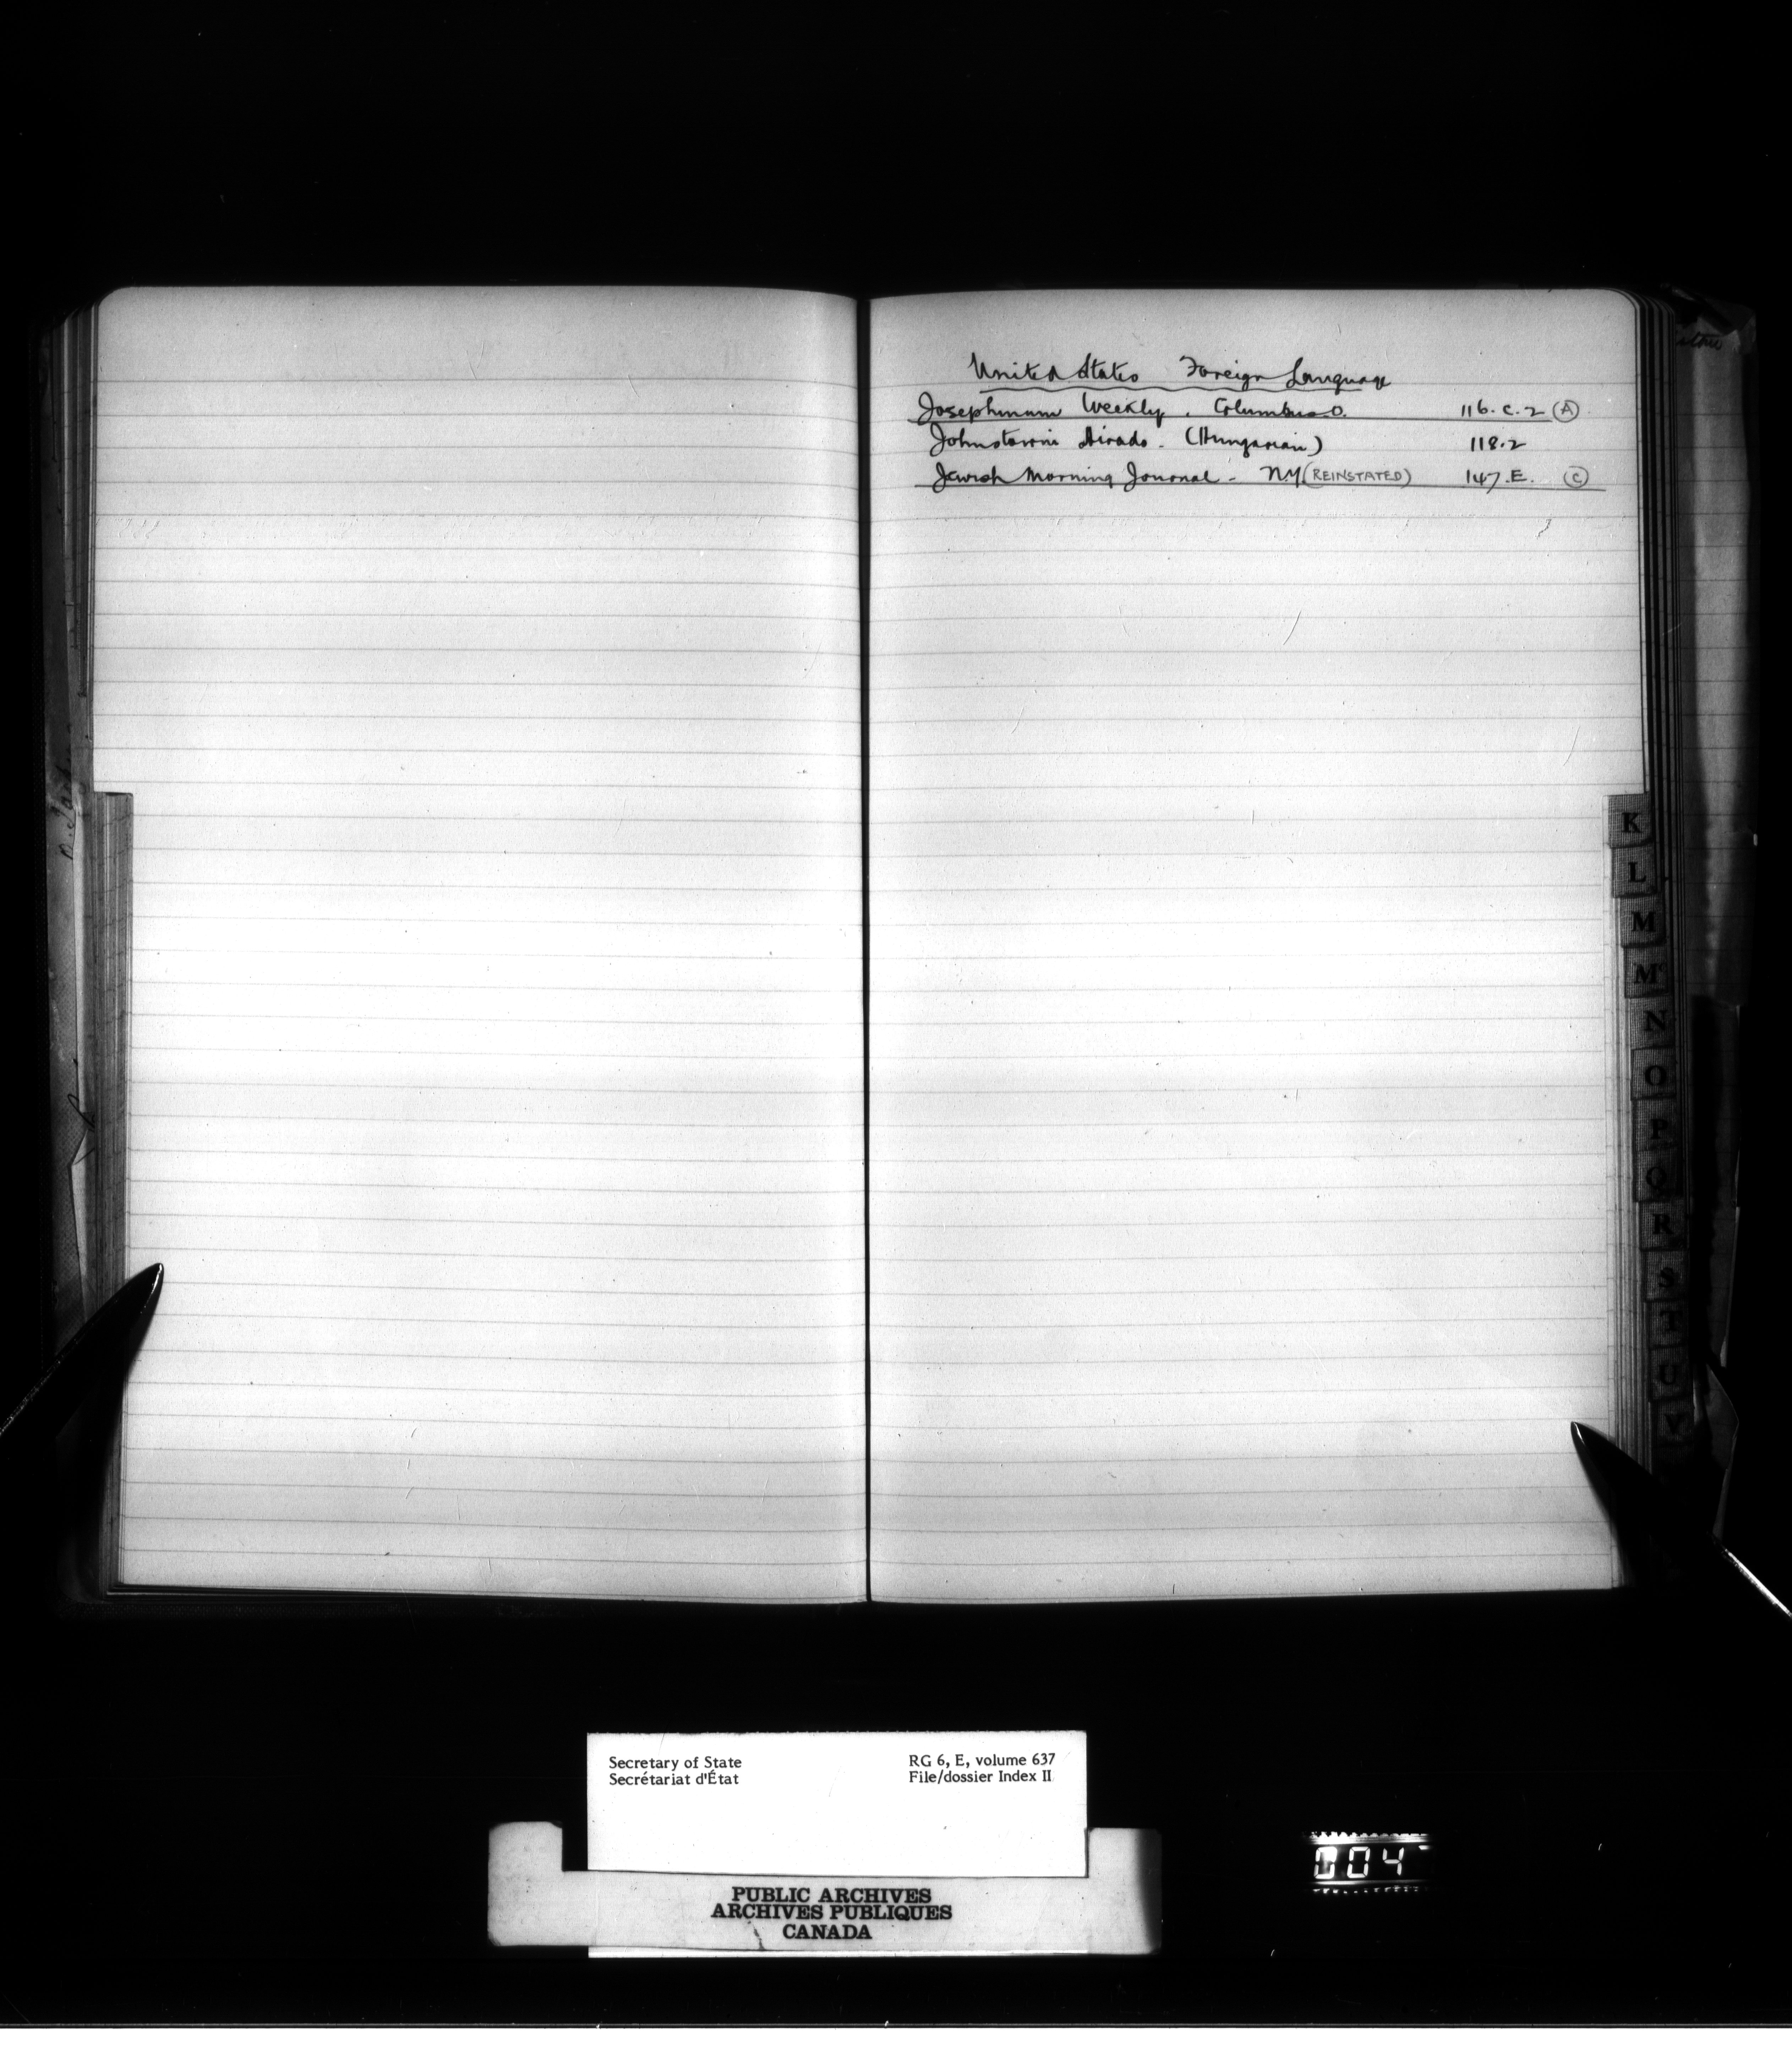 United States Foreign Language
Josephinum Weekly. Columbus O. 116.C.2 (A)
Johnstowni Hirado. (Hungarian) 118.2
Jewish Morning Journal - N.Y (REINSTATED) 147.E. (C)
K
L
M
Mc
N
O
P
Q
R
S
T
U
V
Secretary of State
Secrétariat d'État
RG 6, E, volume 637
File/dossier Index II
PUBLIC ARCHIVES
ARCHIVES PUBLIQUES
CANADA
004